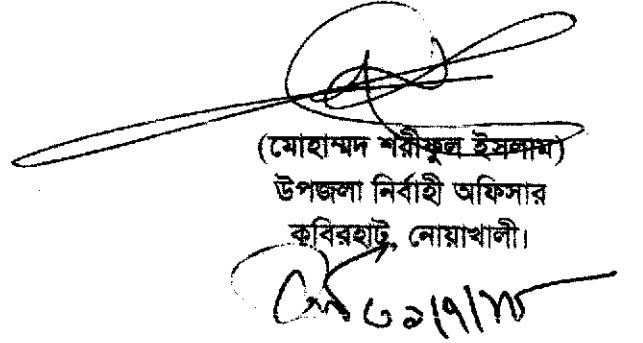 (মোহাম্মদ শরীফুল ইসলাম)
উপজেলা নির্বাহী অফিসার
কবিরহাট, নোয়াখালী।